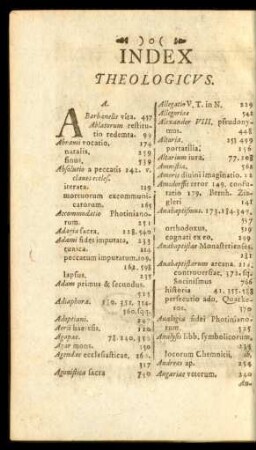 )o(
INDEX
THEOLOGICVS.
A.
Abarbanelis vita. 457
Ablatorum restitutio redemta. 99
Abrami vocatio, 174
natalis, 259
sinus, 739
Absolutio a peccatis 242. v.
claves eccles.
iterata. 119
mortuorum excommunicatorum. 185
Accommodatio Photiniano-
rum. 251
Adami fides imputata, 235
cunica.
peccatum imputatum. 209.
lapsus. 235
Adam primus & secundus.
Adiaphora. 350. 352. 354.
Adoptiani.
Aerii haeresis.
Agapae. 78. 240.
Agar mons. 150
Agendae ecclesiasticae,
517
Agonistica sacra 750
Allegatio V. T. in N. 229
Allegoriae 542
Alexander VIII. pseudony-
mus. 448
Altaria. 255
portatilia. 136
Altarium iura. 77. 208
Amnistia. 361
Amoris divini imaginatio. 12
Amsdorffii error 149. confu-
tatio 179. Bernh. Zin-
gleri 148
Anabaptismus.
517
orthodoxus, 509
cognati ex eo. 509
Anabaptistae Monasterienses
Anabaptistarum arcana.
controversiae, 372. sq.
Socinismus 766
historia
persecutio adv. Quakeros.
Analogia fidei Photiniano-
rum. 325
Analysis libb. symbolicorum,
locorum Chemnicii.
Andreas ap. 256
Angariae veterum. 240